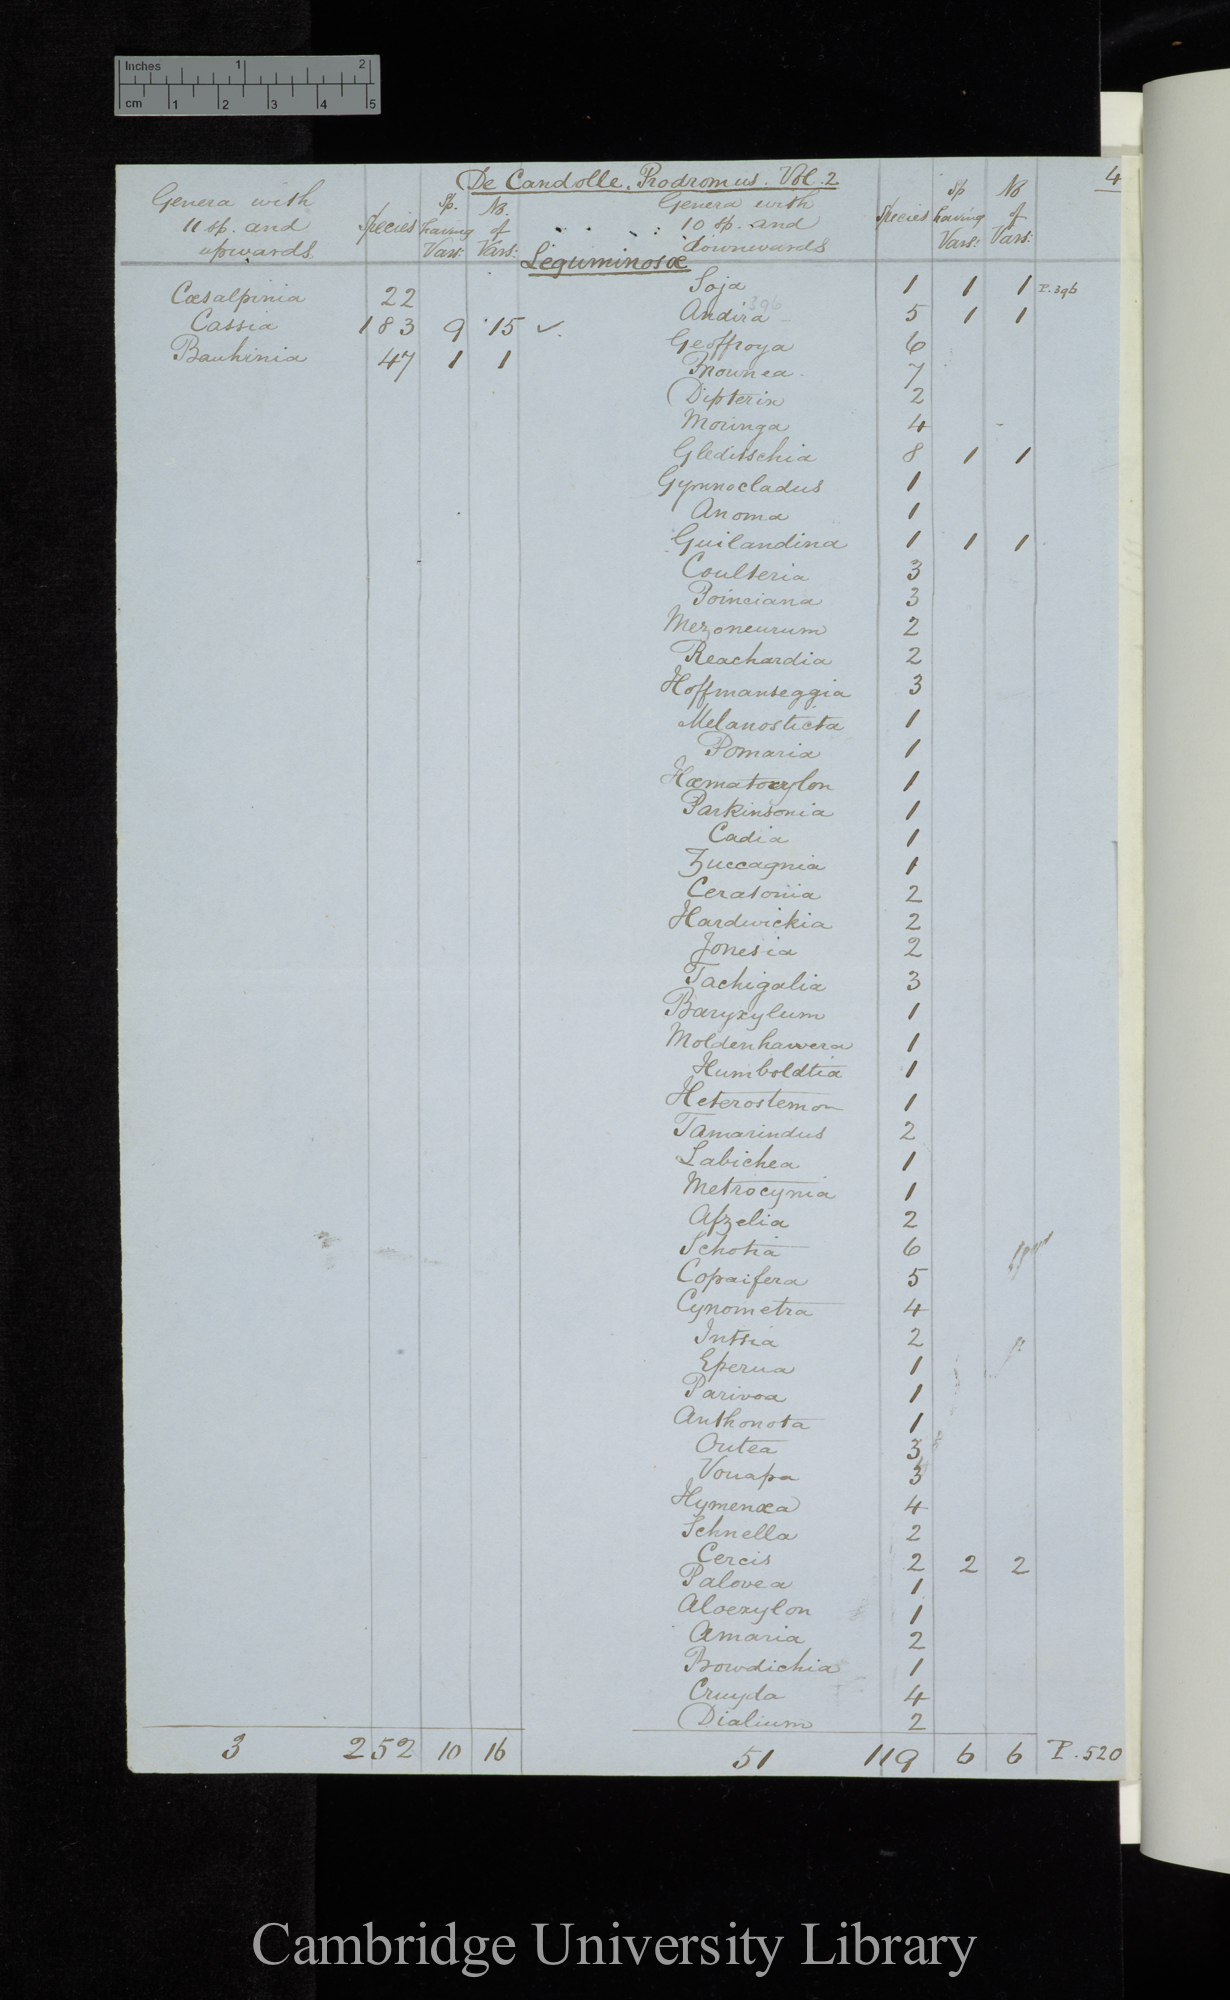 Inches 1 2
cm 1 2 3 4 5
De Candolle. Prodromus. Vol. 2
4
Genera with 11 sp. and upwards
Species
Sp. having Vars:
No. of Vars:
Genera with 10 sp. and downwards
Species
Sp having Vars:
No of Vars:
Leguminosæ
Cæsalpinia 22
Cassia 183 9 15 ✓
Bauhinia 47 1 1
3 252 10 16
Soja 1 1 1 P. 396
396
Andira 5 1 1
Geoffroya 6
Brownea 7
Dipterix 2
Moringa 4
Gleditschia 8 1 1
Gymnocladus 1
Anoma 1
Guilandina 1 1 1
Coulteria 3
Poinciana 3
Mezoneurum 2
Reachardia 2
Hoffmanseggia 3
Melanosticta 1
Pomaria 1
Hæmatoxylon 1
Parkinsonia 1
Cadia 1
Zuccagnia 1
Ceratonia 2
Hardwickia 2
Jonesia 2
Tachigalia 3
Baryxylum 1
Moldenhawera 1
Humboldtia 1
Heterostemon 1
Tamarindus 2
Labichea 1
Metrocynia 1
Afzelia 2
Schotia 6
Copaifera 5
Cynometra 4
Intsia 2
Eperua 1
Parivoa 1
Anthonota 1
Outea 3
Vouapa 3
Hymenæa 4
Schnella 2
Cercis 2 2 2
Palovea 1
Aloexylon 1
Amaria 2
Bowdichia 1
Cruyda 4
Dialium 2
51 119 6 6 P. 520
Cambridge University Library